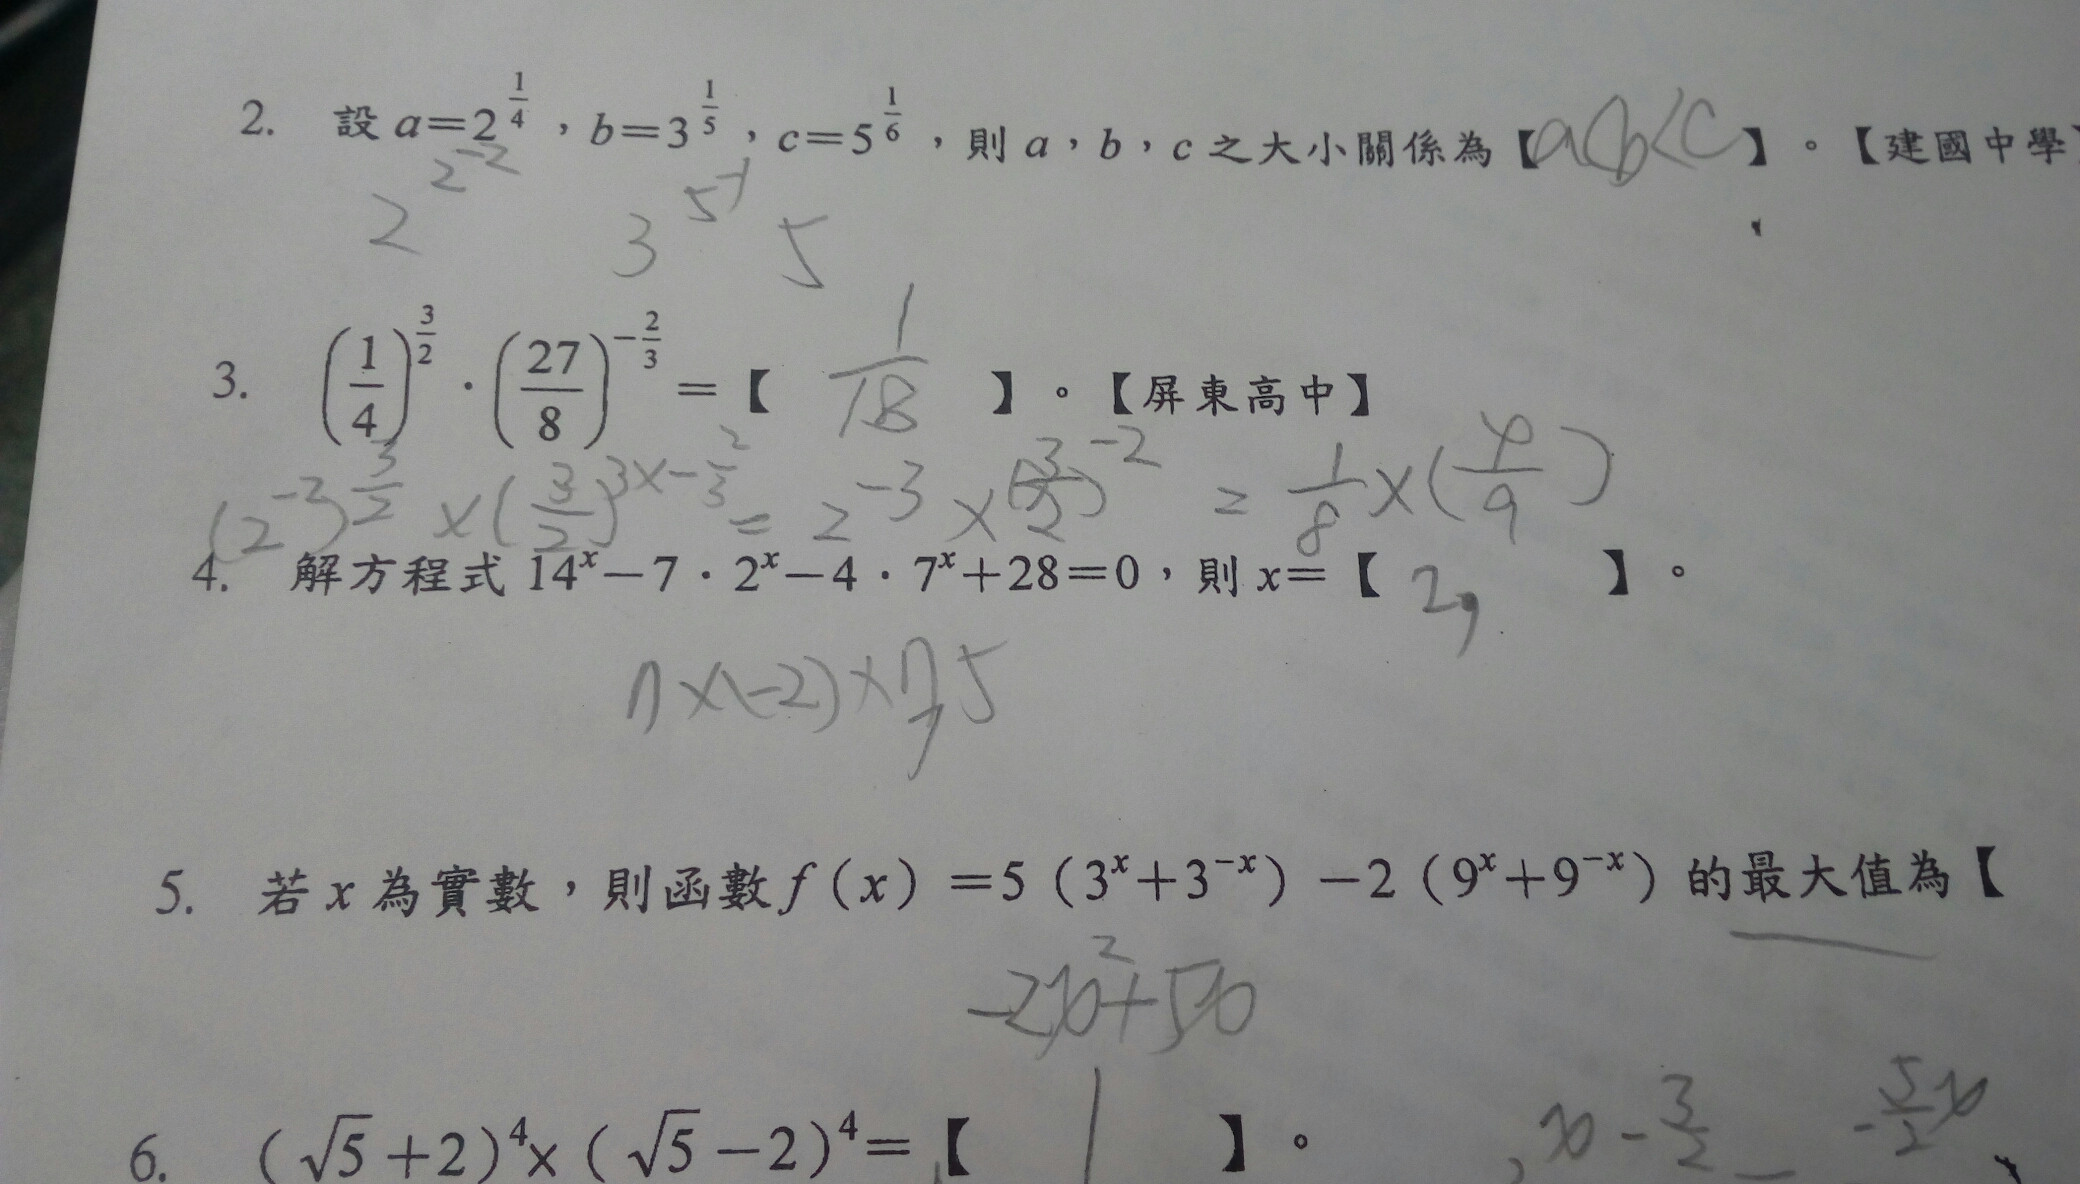 2. 設 a=2^{\frac{1}{4}}，b=3^{\frac{1}{5}}，c=5^{\frac{1}{6}}，則 a，b，c 之大小關係為【a<b<c】。【建國中學
2^{2^{-2}} 3^{5^{-1}} 5
3. (\frac{1}{4})^{\frac{3}{2}}·(\frac{27}{8})^{-\frac{2}{3}}=【\frac{1}{18}】。【屏東高中】
(2^{-2})^{\frac{3}{2}}×(\frac{3}{2})^{3×-\frac{2}{3}}=2^{-3}×(\frac{3}{2})^{-2}=\frac{1}{8}×(\frac{4}{9})
4. 解方程式 14^x−7·2^x−4·7^x+28=0，則 x=【2,】。
5. 若 x 為實數，則函數 f(x)=5(3^x+3^{-x})−2(9^x+9^{-x}) 的最大值為【
-2x^2+5x
6. (√5+2)^4×(√5−2)^4=【1】。
x-\frac{3}{2} -\frac{5}{2}x